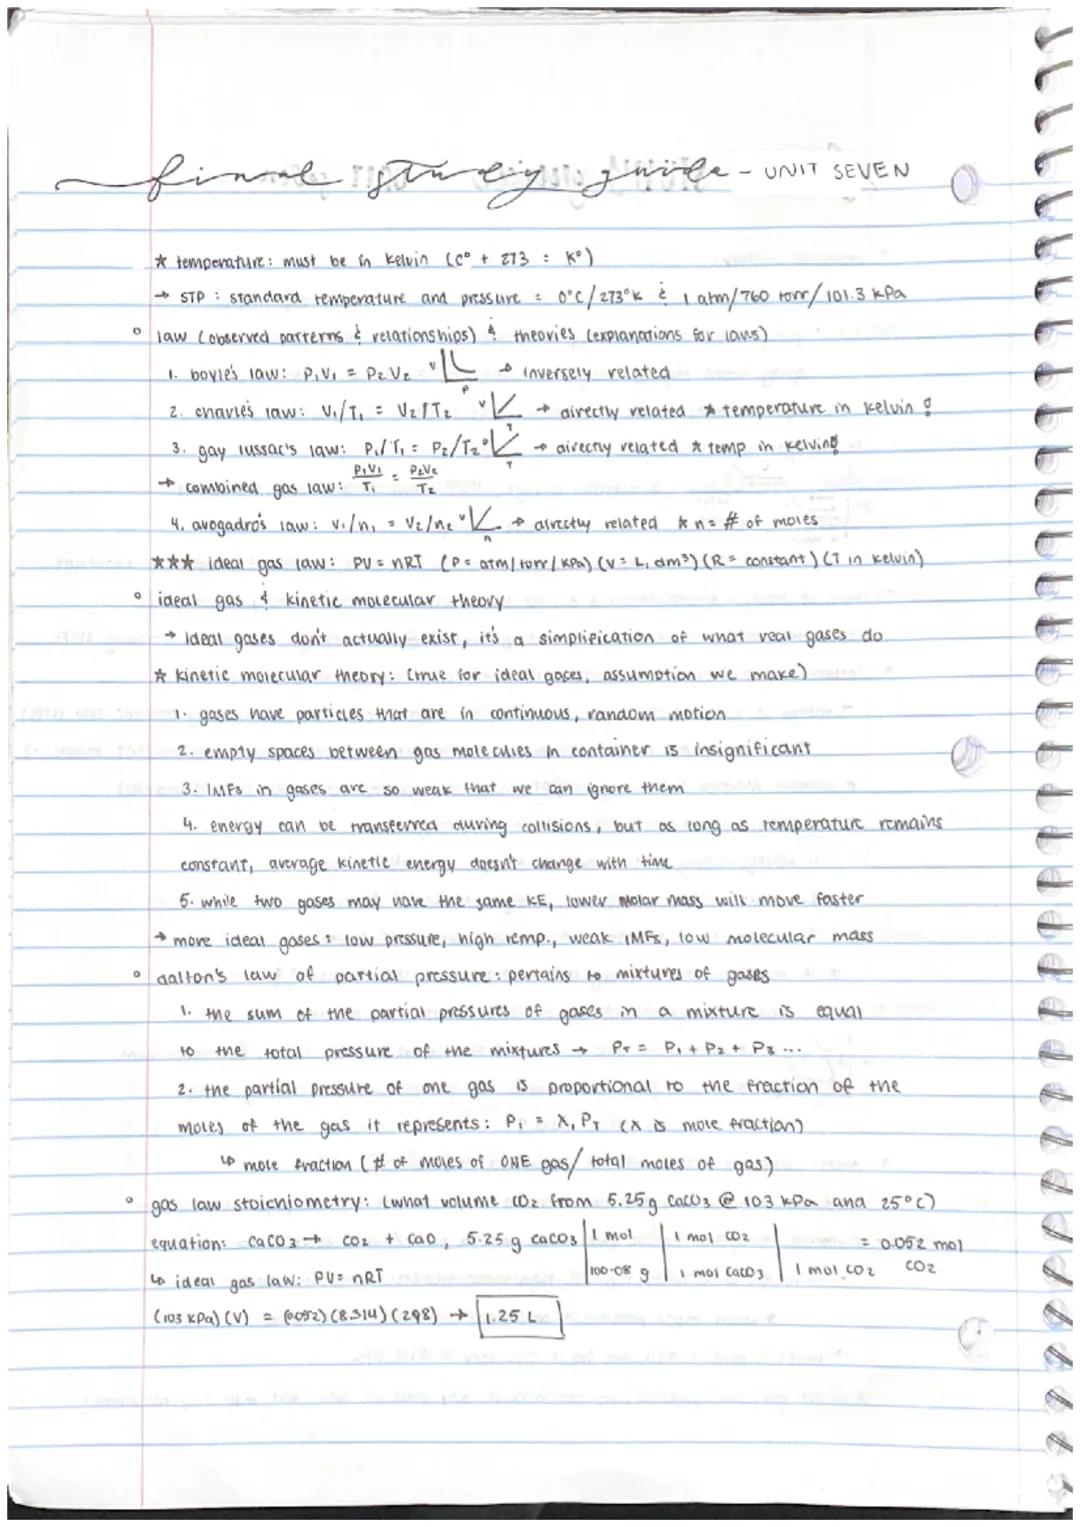 final study guide - UNIT SEVEN
* temperature: must be in kelvin (C° + 273 = K°)
→ STP : standard temperature and pressure = 0°C/273°K & 1 atm/760 torr/101.3 kPa
° law (observed patterns & relationships) & theories (explanations for laws)
1. boyle's law: P₁V₁ = P₂V₂ V P → inversely related
2. charle's law: V₁/T₁ = V₂/T₂ V T → directly related * temperature in kelvin!
3. gay lussac's law: P₁/T₁ = P₂/T₂ P T → directly related * temp in kelvin!
→ combined gas law: P₁V₁/T₁ = P₂V₂/T₂
4. avogadro's law: V₁/n₁ = V₂/n₂ V n → directly related * n = # of moles
*** ideal gas law: PV = nRT (P = atm/torr/kPa) (V = L, dm³) (R = constant) (T in kelvin)
° ideal gas & kinetic molecular theory
→ ideal gases don't actually exist, it's a simplification of what real gases do
* kinetic molecular theory: (true for ideal gases, assumption we make)
1. gases have particles that are in continuous, random motion
2. empty spaces between gas molecules in container is insignificant
3. IMFs in gases are so weak that we can ignore them
4. energy can be transferred during collisions, but as long as temperature remains
constant, average kinetic energy doesn't change with time
5. while two gases may have the same KE, lower molar mass will move faster
→ more ideal gases: low pressure, high temp., weak IMFs, low molecular mass
° dalton's law of partial pressure: pertains to mixtures of gases
1. the sum of the partial pressures of gases in a mixture is equal
to the total pressure of the mixtures → PT = P₁ + P₂ + P₃ ...
2. the partial pressure of one gas is proportional to the fraction of the
moles of the gas it represents: P₁ = X₁ PT (X is mole fraction)
↳ mole fraction (# of moles of ONE gas/ total moles of gas)
° gas law stoichiometry: (what volume CO₂ from 5.25g CaCO₃ @ 103 kPa and 25°C)
equation: CaCO₃ → CO₂ + CaO, 5.25 g CaCO₃ | 1 mol | 1 mol CO₂ | = 0.052 mol
100.08 g | 1 mol CaCO₃ | 1 mol CO₂ CO₂
↳ ideal gas law: PV = nRT
(103 kPa)(V) = (0.052)(8.314)(298) → 1.25 L